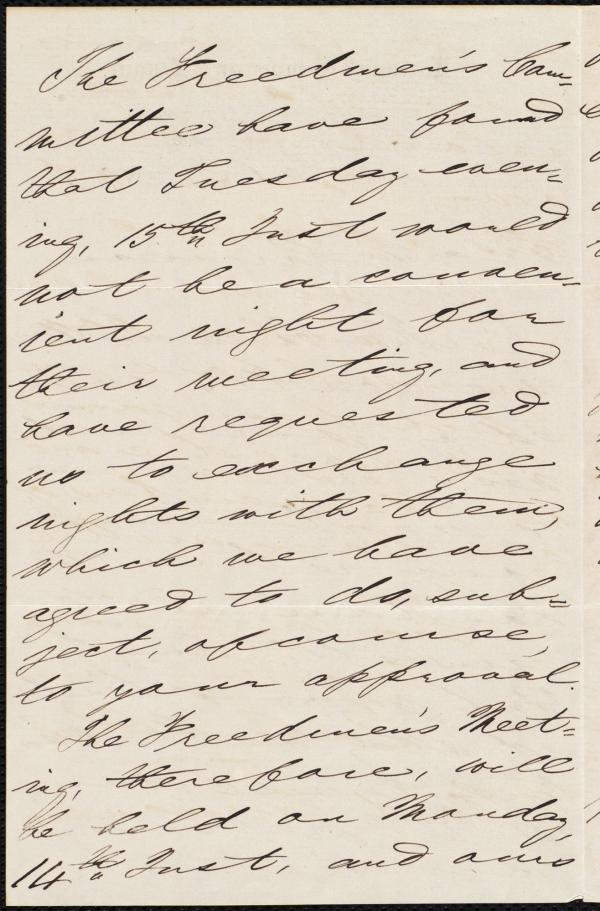 The Freedmen's Com-
mittee have found
that Tuesday even-
ing, 15th, Inst would
not be a conven-
ient night for
their meeting, and
have requested
us to exchange
nights with them,
which we have
agreed to do, sub-
ject, of course,
to your approval.
The Freedmen's Meet-
ing, therefore, will
be held on Monday,
14th, Inst, and ours